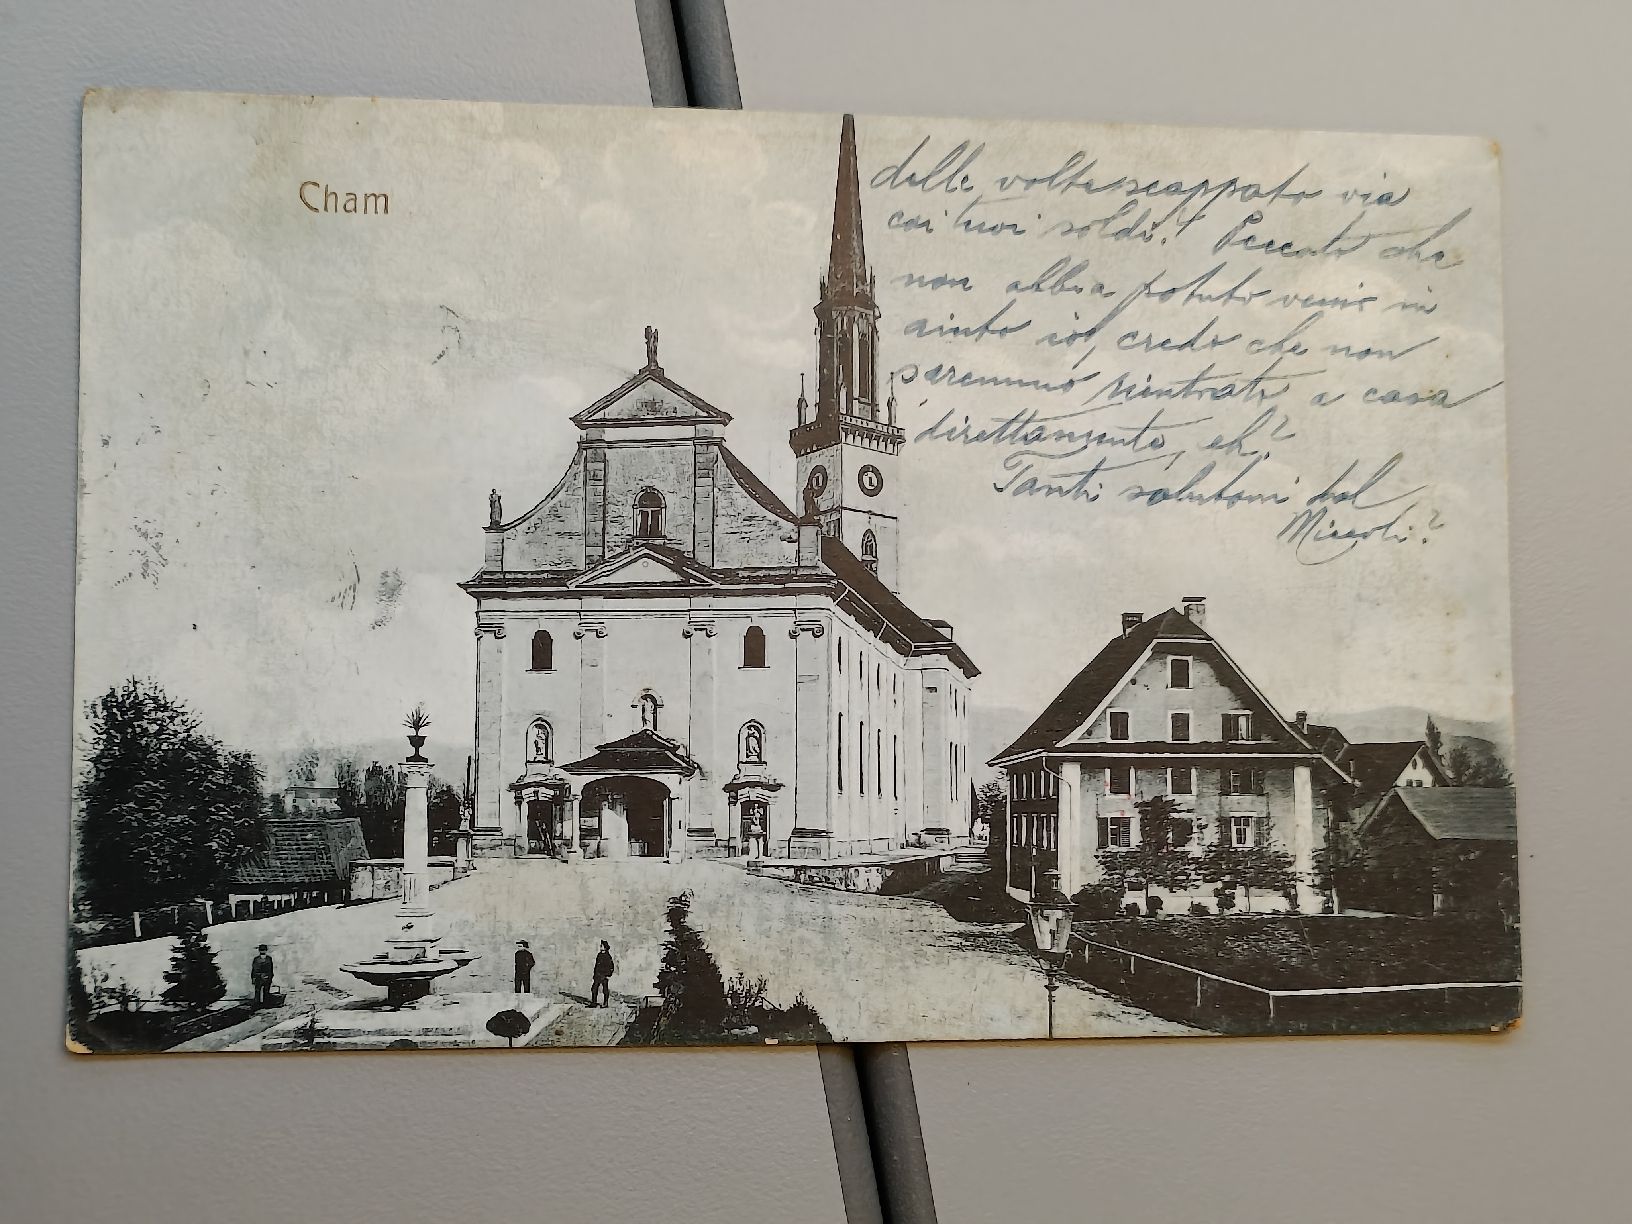 Cham
delle volte scappato via
coi tuoi soldi! Peccato che
non abbia potuto venir in
aiuto io, credo che non
saremmo rientrati a casa
direttamente, eh?
Tanti salutoni dal
Miccoli?